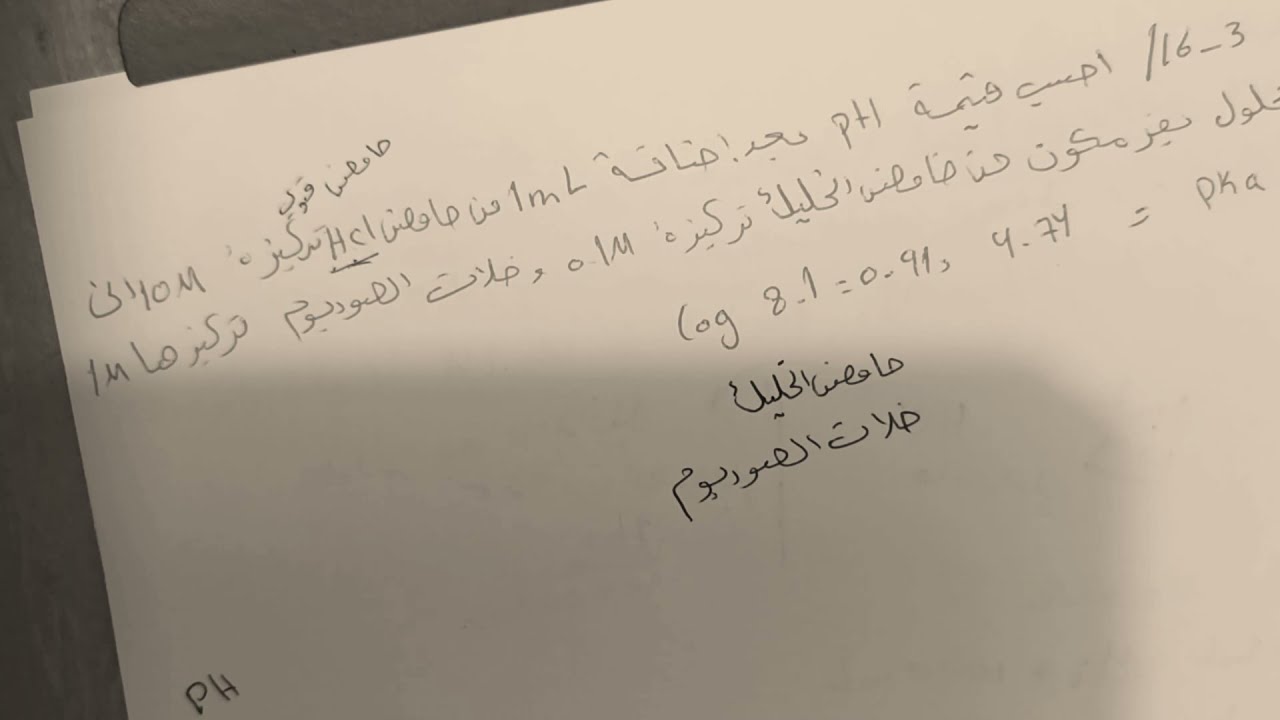 16-3/ احسب قيمة pH بعد اضافة 1mL من حامض HCl تركيزه 10M الى
حامض قوي
محلول بفر مكون من حامض الخليك تركيزه 0.1M و خلات الصوديوم تركيزها 1M
pKa = 4.74 , log 8.1 = 0.91
حامض الخليك
خلات الصوديوم
PH